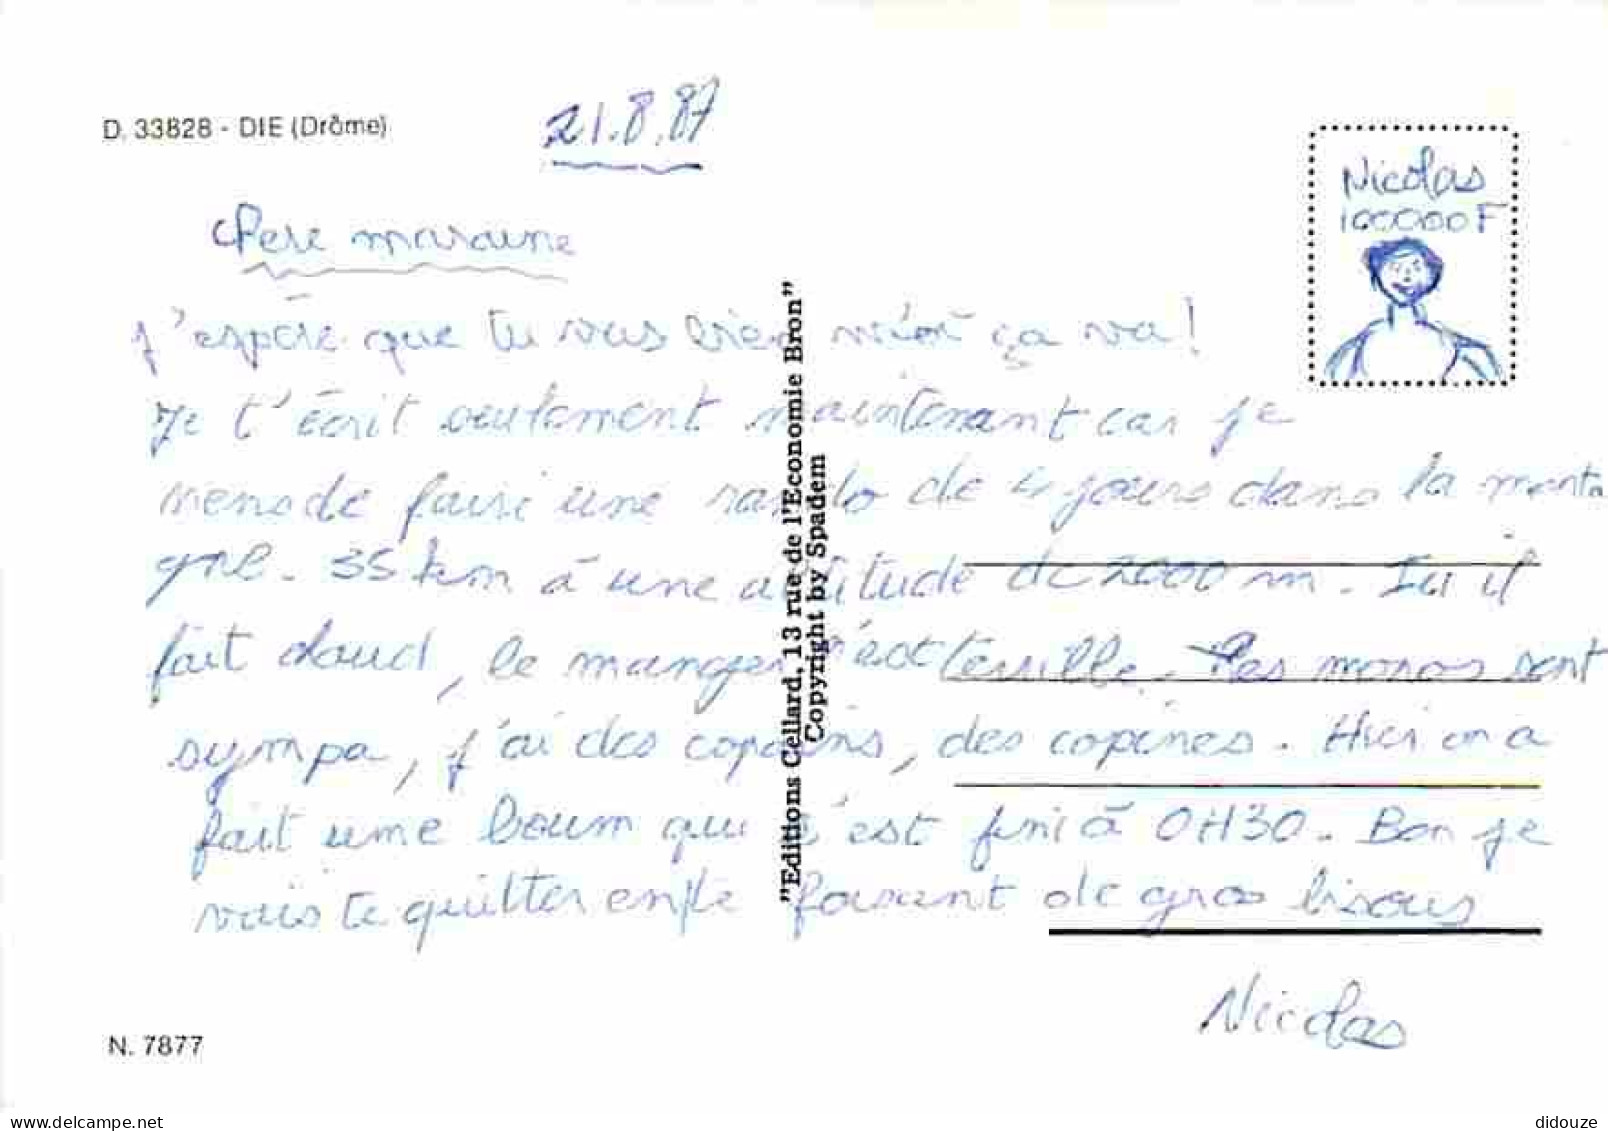 D. 33828 - DIE (Drôme)
21.8.87
Nicolas
100000F
Chère maraine
j'espère que tu vas bien moi ça va !
Je t'écrit seulement maintenant car je
viens de faire une rando de 4 jours dans la monta
gne. 35 km à une altitude de 2000 m. Ici il
fait chaud, le manger c'est terrible. Les monos sont
sympa, j'ai des copains, des copines. Hier on a
fait une boum qui c'est fini à 0H30. Bon je
vais te quitter en te faisant de gros bisous
Nicolas
"Editions Cellard, 13 rue de l'Economie Bron"
Copyright by Spadem
N. 7877
delcampe.net
didouze